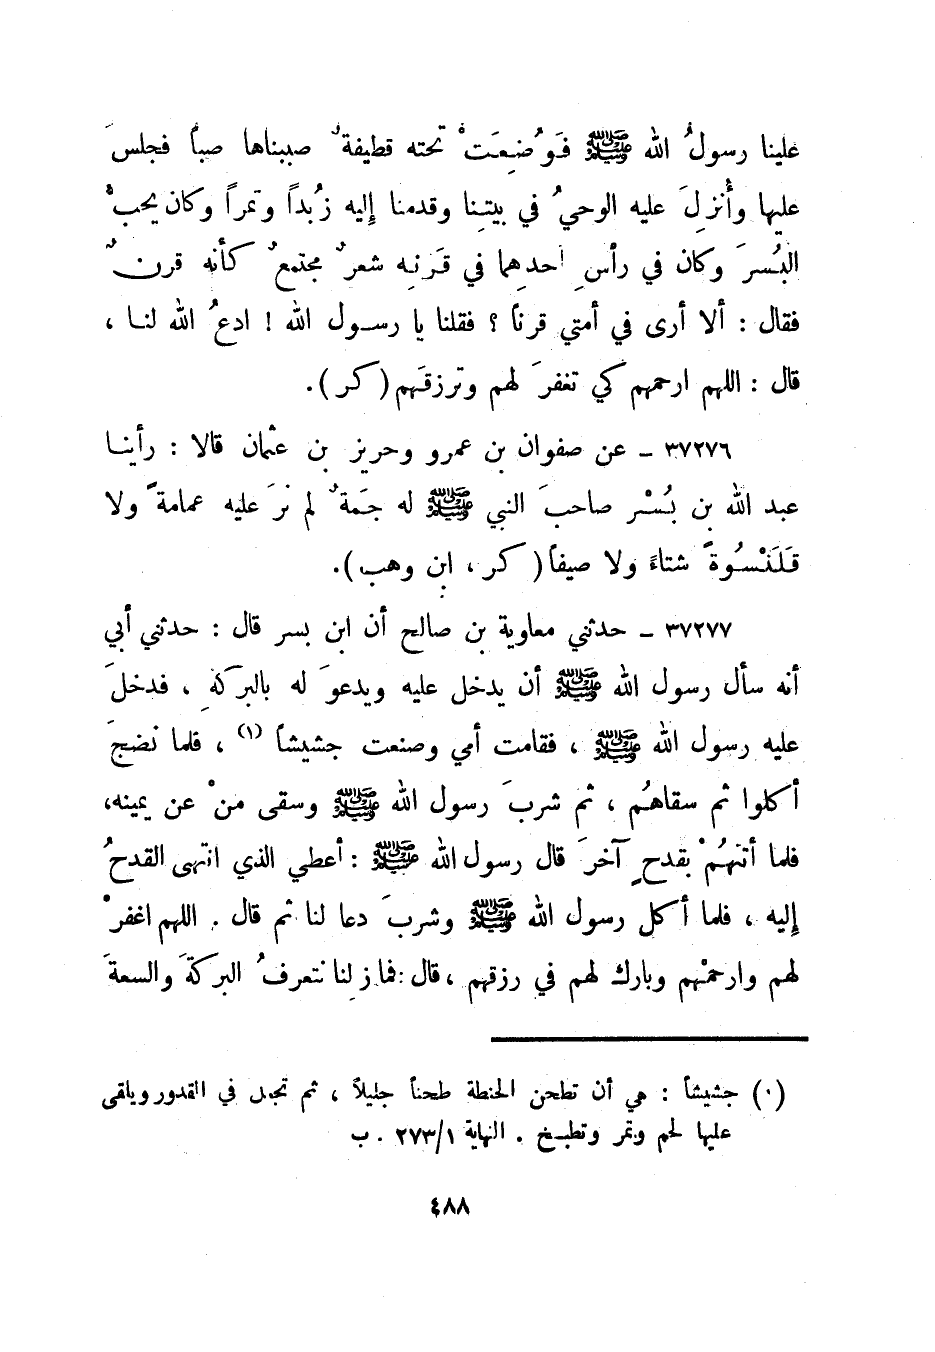 علينا رسولُ الله ﷺ فَوُضِعَتْ تحته قطيفةٌ صببناها صباً فجلسَ
عليها وأُنزِلَ عليه الوحيُ في بيتِنا وقدمنا إليه زُبداً وتمراً وكان يحبْ
البُسرَ وكان في رأسِ احدِهما في قَرنِه شعرٌ مجتمعٌ كأنه قرنٌ
فقال : ألا أرى في أمتي قرناً ؟ فقلنا يا رسول الله ! ادعُ الله لنا ،
قال : اللهم ارحمهم كي تغفرَ لهم وترزقَهم ( كر ) .
٣٧٢٧٦ ـ عن صفوان بن عمرو وحريز بن عثمان قالا : رأينا
عبد الله بن بُسْر صاحبَ النبي ﷺ له جمَةٌ لم نرَ عليه عمامةً ولا
قَلَنْسُوةً شتاءً ولا صيفاً ( كر ، ابن وهب ) .
٣٧٢٧٧ ـ حدثني معاوية بن صالح أن ابن بسر قال : حدثني أبي
أنه سأل رسول الله ﷺ أن يدخل عليه ويدعوَ له بالبركةِ ، فدخلَ
عليه رسول الله ﷺ ، فقامت أمي وصنعت جشيشاً (١) ، فلما نضجَ
أكلوا ثم سقاهُم ، ثم شربَ رسول الله ﷺ وسقى منْ عن يمينه،
فلما أتتهُمْ بقدحٍ آخرَ قال رسول الله ﷺ : أعطي الذي انتهى القدحُ
إليه ، فلما أكل رسول الله ﷺ وشربَ دعا لنا ثم قال . اللهم اغفرْ
لهم وارحمْهم وبارك لهم في رزقهم ، قال : فما زلنا نتعرفُ البركةَ والسعةَ
(١) جشيشاً : هي أن تطحن الحنطة طحناً جليلاً ، ثم تجعل في القدور ويلقى
عليها لحم وتمر وتطبخ . النهاية ١/٢٧٣ . ب
٤٨٨